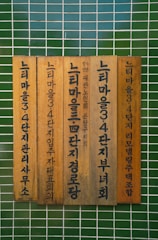 느티마을3·4단지관리사무소
느티마을3·4단지입주자대표회의
느티마을三·四단지경로당
느티마을3·4단지부녀회
느티마을3·4단지리모델링주택조합